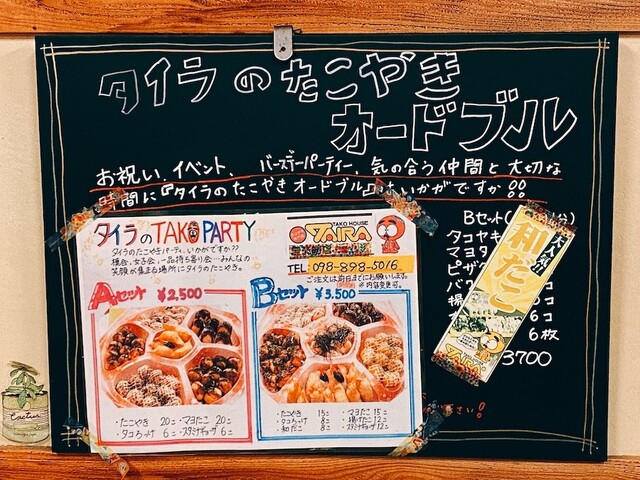 タイラのたこやき
オードブル
お祝い、イベント、バースデーパーティー、気の合う仲間と大切な
時間に『タイラのたこやきオードブル』はいかがですか!!
タイラのTAKO PARTY
タイラのたこやきパーティ、いかがですか??
種会、女子会、一品持ち寄り会…みんなの
笑顔が集まる場所にタイラのたこやき。
TAKO HOUSE
TAIRA
TEL 098-898-5016
ご注文は前日までにお願いします。
※内容変更可。
Aセット ¥2,500
・たこやき 20コ ・マヨたこ 20コ
・タコろっけ 6コ ・スタミナギョーザ 6コ
Bセット ¥3,500
・たこやき 15コ ・マヨたこ 15コ
・タコろっけ 8コ ・揚げたこ 12コ
・和だこ 8コ ・スタミナギョーザ 12コ
Bセット(
タコヤキ
マヨタ
ピザ
バ
揚
6コ
6枚
3700
さい!
大人気!!
和だこ
TAIRA
Cactus